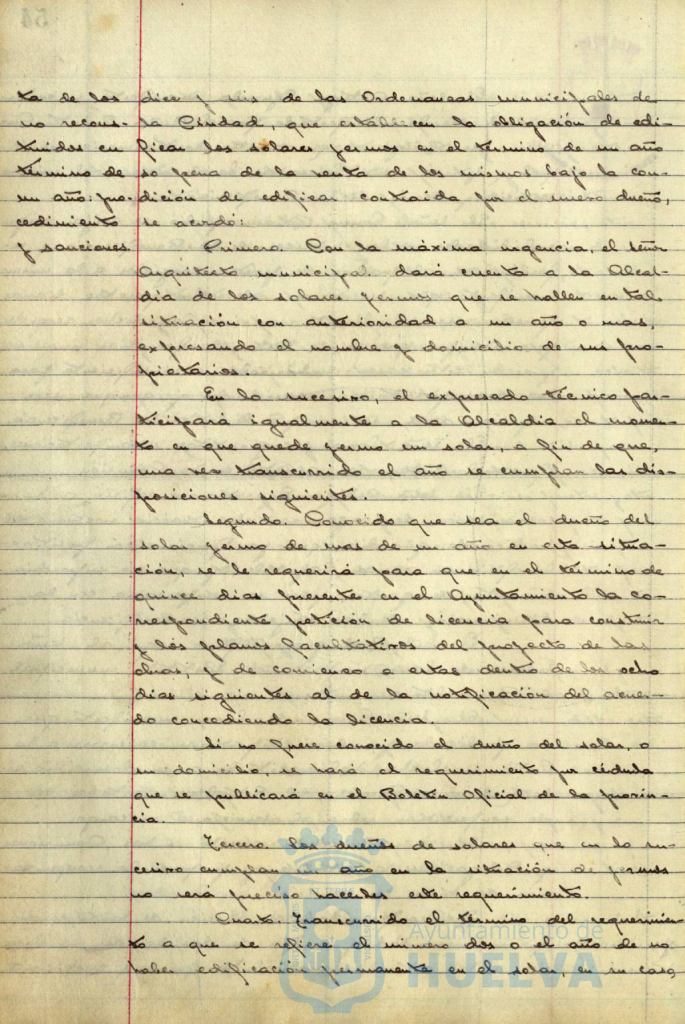 54
ta de los
no recons-
truidos en
término de
un año: pro-
cedimiento
y sanciones.
diez y seis de las Ordenanzas municipales de
la Ciudad, que establecen la obligación de edi-
ficar los solares yermos en el término de un año
so pena de la venta de los mismos bajo la con-
dición de edificar contraida por el nuevo dueño,
se acordó:
Primero. Con la máxima urgencia, el señor
Arquitecto municipal dará cuenta a la Alcal-
día de los solares yermos que se hallen en tal
situación con anterioridad a un año o mas,
expresando el nombre y domicilio de sus pro-
pietarios.
En lo sucesivo, el expresado técnico par-
ticipará igualmente a la Alcaldía el momen-
to en que quede yermo un solar, a fin de que,
una vez transcurrido el año se cumplan las dis-
posiciones siguientes.
Segundo. Conocido que sea el dueño del
solar yermo de mas de un año en esta situa-
ción, se le requerirá para que en el término de
quince días presente en el Ayuntamiento la co-
rrespondiente petición de licencia para construir
y los planos facultativos del proyecto de las
obras, y de comienzo a estas dentro de los ocho
días siguientes al de la notificación del acuer-
do concediendo la licencia.
Si no fuere conocido el dueño del solar, o
su domicilio, se hará el requerimiento por cédula
que se publicará en el Boletín Oficial de la provin-
cia.
Tercero. Los dueños de solares que en lo su-
cesivo cumplan un año en la situación de yermos
no será preciso hacerles este requerimiento.
Cuarto. Transcurrido el término del requerimien-
to a que se refiere el número dos o el año de no
haber edificación permanente en el solar, en su caso,
Ayuntamiento de
HUELVA